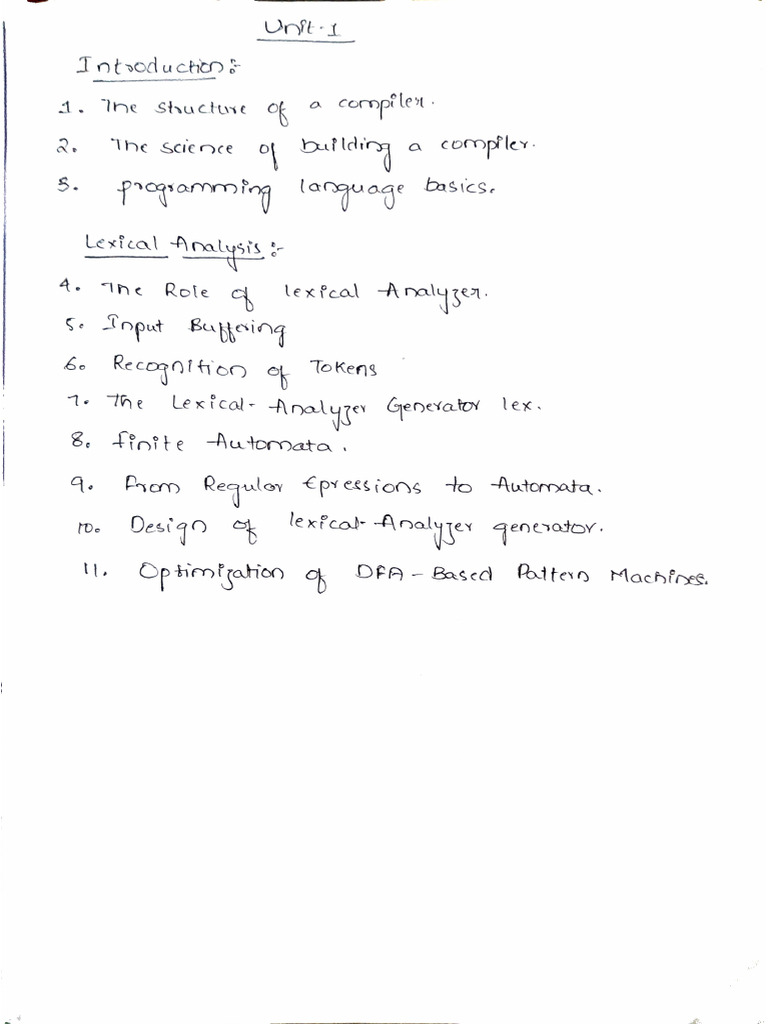 Unit-1
Introduction:-
1. The structure of a compiler.
2. The science of building a compiler.
3. programming language basics.
Lexical Analysis:-
4. The Role of lexical Analyzer.
5. Input Buffering
6. Recognition of Tokens
7. The Lexical-Analyzer Generator lex.
8. finite Automata.
9. From Regular Epressions to Automata.
10. Design of lexical-Analyzer generator.
11. Optimization of DFA-Based Pattern Machines.